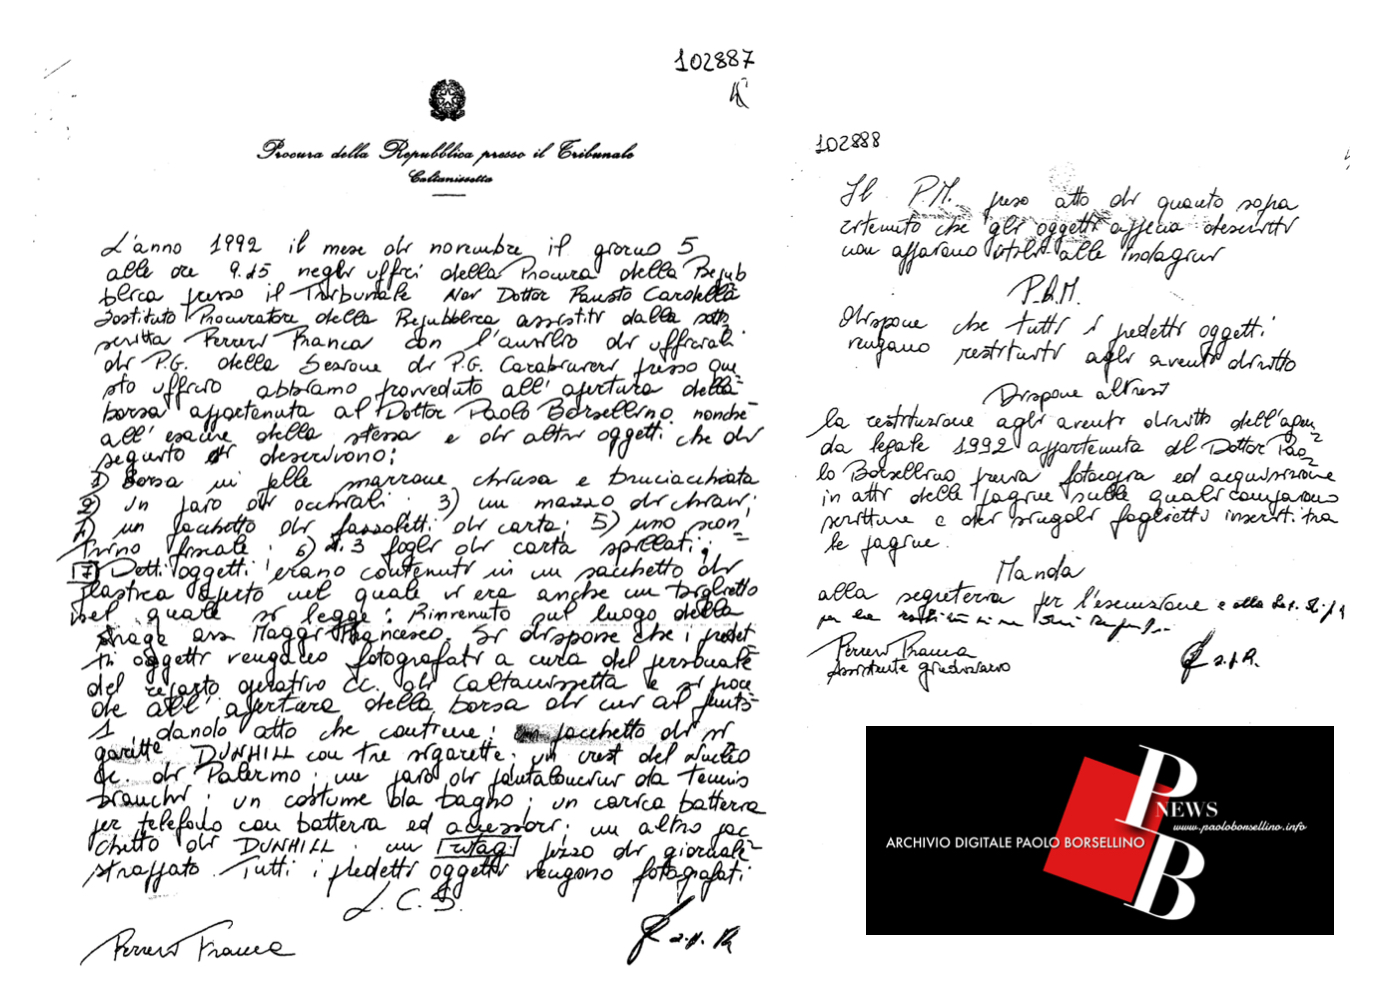 102887
Procura della Repubblica presso il Tribunale
Caltanissetta
L'anno 1992 il mese di novembre il giorno 5
alle ore 9.15 negli uffici della Procura della Repub
blica presso il Tribunale Noi Dottor Fausto Cardella
Sostituto Procuratore della Repubblica assistiti dalla sotto
scritta Ferrero Franca con l'ausilio di ufficiali
di P.G. della Sezione di P.G. Carabinieri presso que
sto ufficio abbiamo provveduto all'apertura della
borsa appartenuta al Dottor Paolo Borsellino nonché
all'esame della stessa e di altri oggetti che di
seguito si descrivono:
1) Borsa in pelle marrone chiusa e bruciacchiata
2) Un paio di occhiali; 3) un mazzo di chiavi;
4) un pacchetto di fazzoletti di carta; 5) uno scon=
trino fiscale; 6) n. 3 fogli di carta spillati;
7) Detti oggetti erano contenuti in un sacchetto di
plastica aperto nel quale vi era anche un biglietto
nel quale si legge: Rinvenuto sul luogo della
strage ass. Maggi Francesco. Si dispone che i predet
ti oggetti vengano fotografati a cura del personale
del reparto operativo CC. di Caltanissetta e si proce
de all'apertura della borsa di cui al punto
1 dandosi atto che contiene: un pacchetto di si
garette DUNHILL con tre sigarette; un crest del Nucleo
CC. di Palermo; un paio di pantaloncini da tennis
bianchi; un costume da bagno; un carica batteria
per telefono con batteria ed accessori; un altro pac
chetto di DUNHILL; un pezzo di giornale
strappato. Tutti i predetti oggetti vengono fotografati
L.C.S.
Ferrero Franca
102888
Il P.M. preso atto di quanto sopra
ritenuto che gli oggetti appena descritti
non appaiono utili alle indagini
P.Q.M.
Dispone che tutti i predetti oggetti
vengano restituiti agli aventi diritto
Dispone altresì
la restituzione agli aventi diritto dell'agen
da legale 1992 appartenuta al Dottor Pao=
lo Borsellino previa fotocopia ed acquisizione
in atti delle pagine sulle quali compaiono
scritture e dei singoli foglietti inseriti tra
le pagine.
Manda
alla segreteria per l'esecuzione e alla
per la
Ferrero Franca
Assistente giudiziario
PB
NEWS
www.paoloborsellino.info
ARCHIVIO DIGITALE PAOLO BORSELLINO